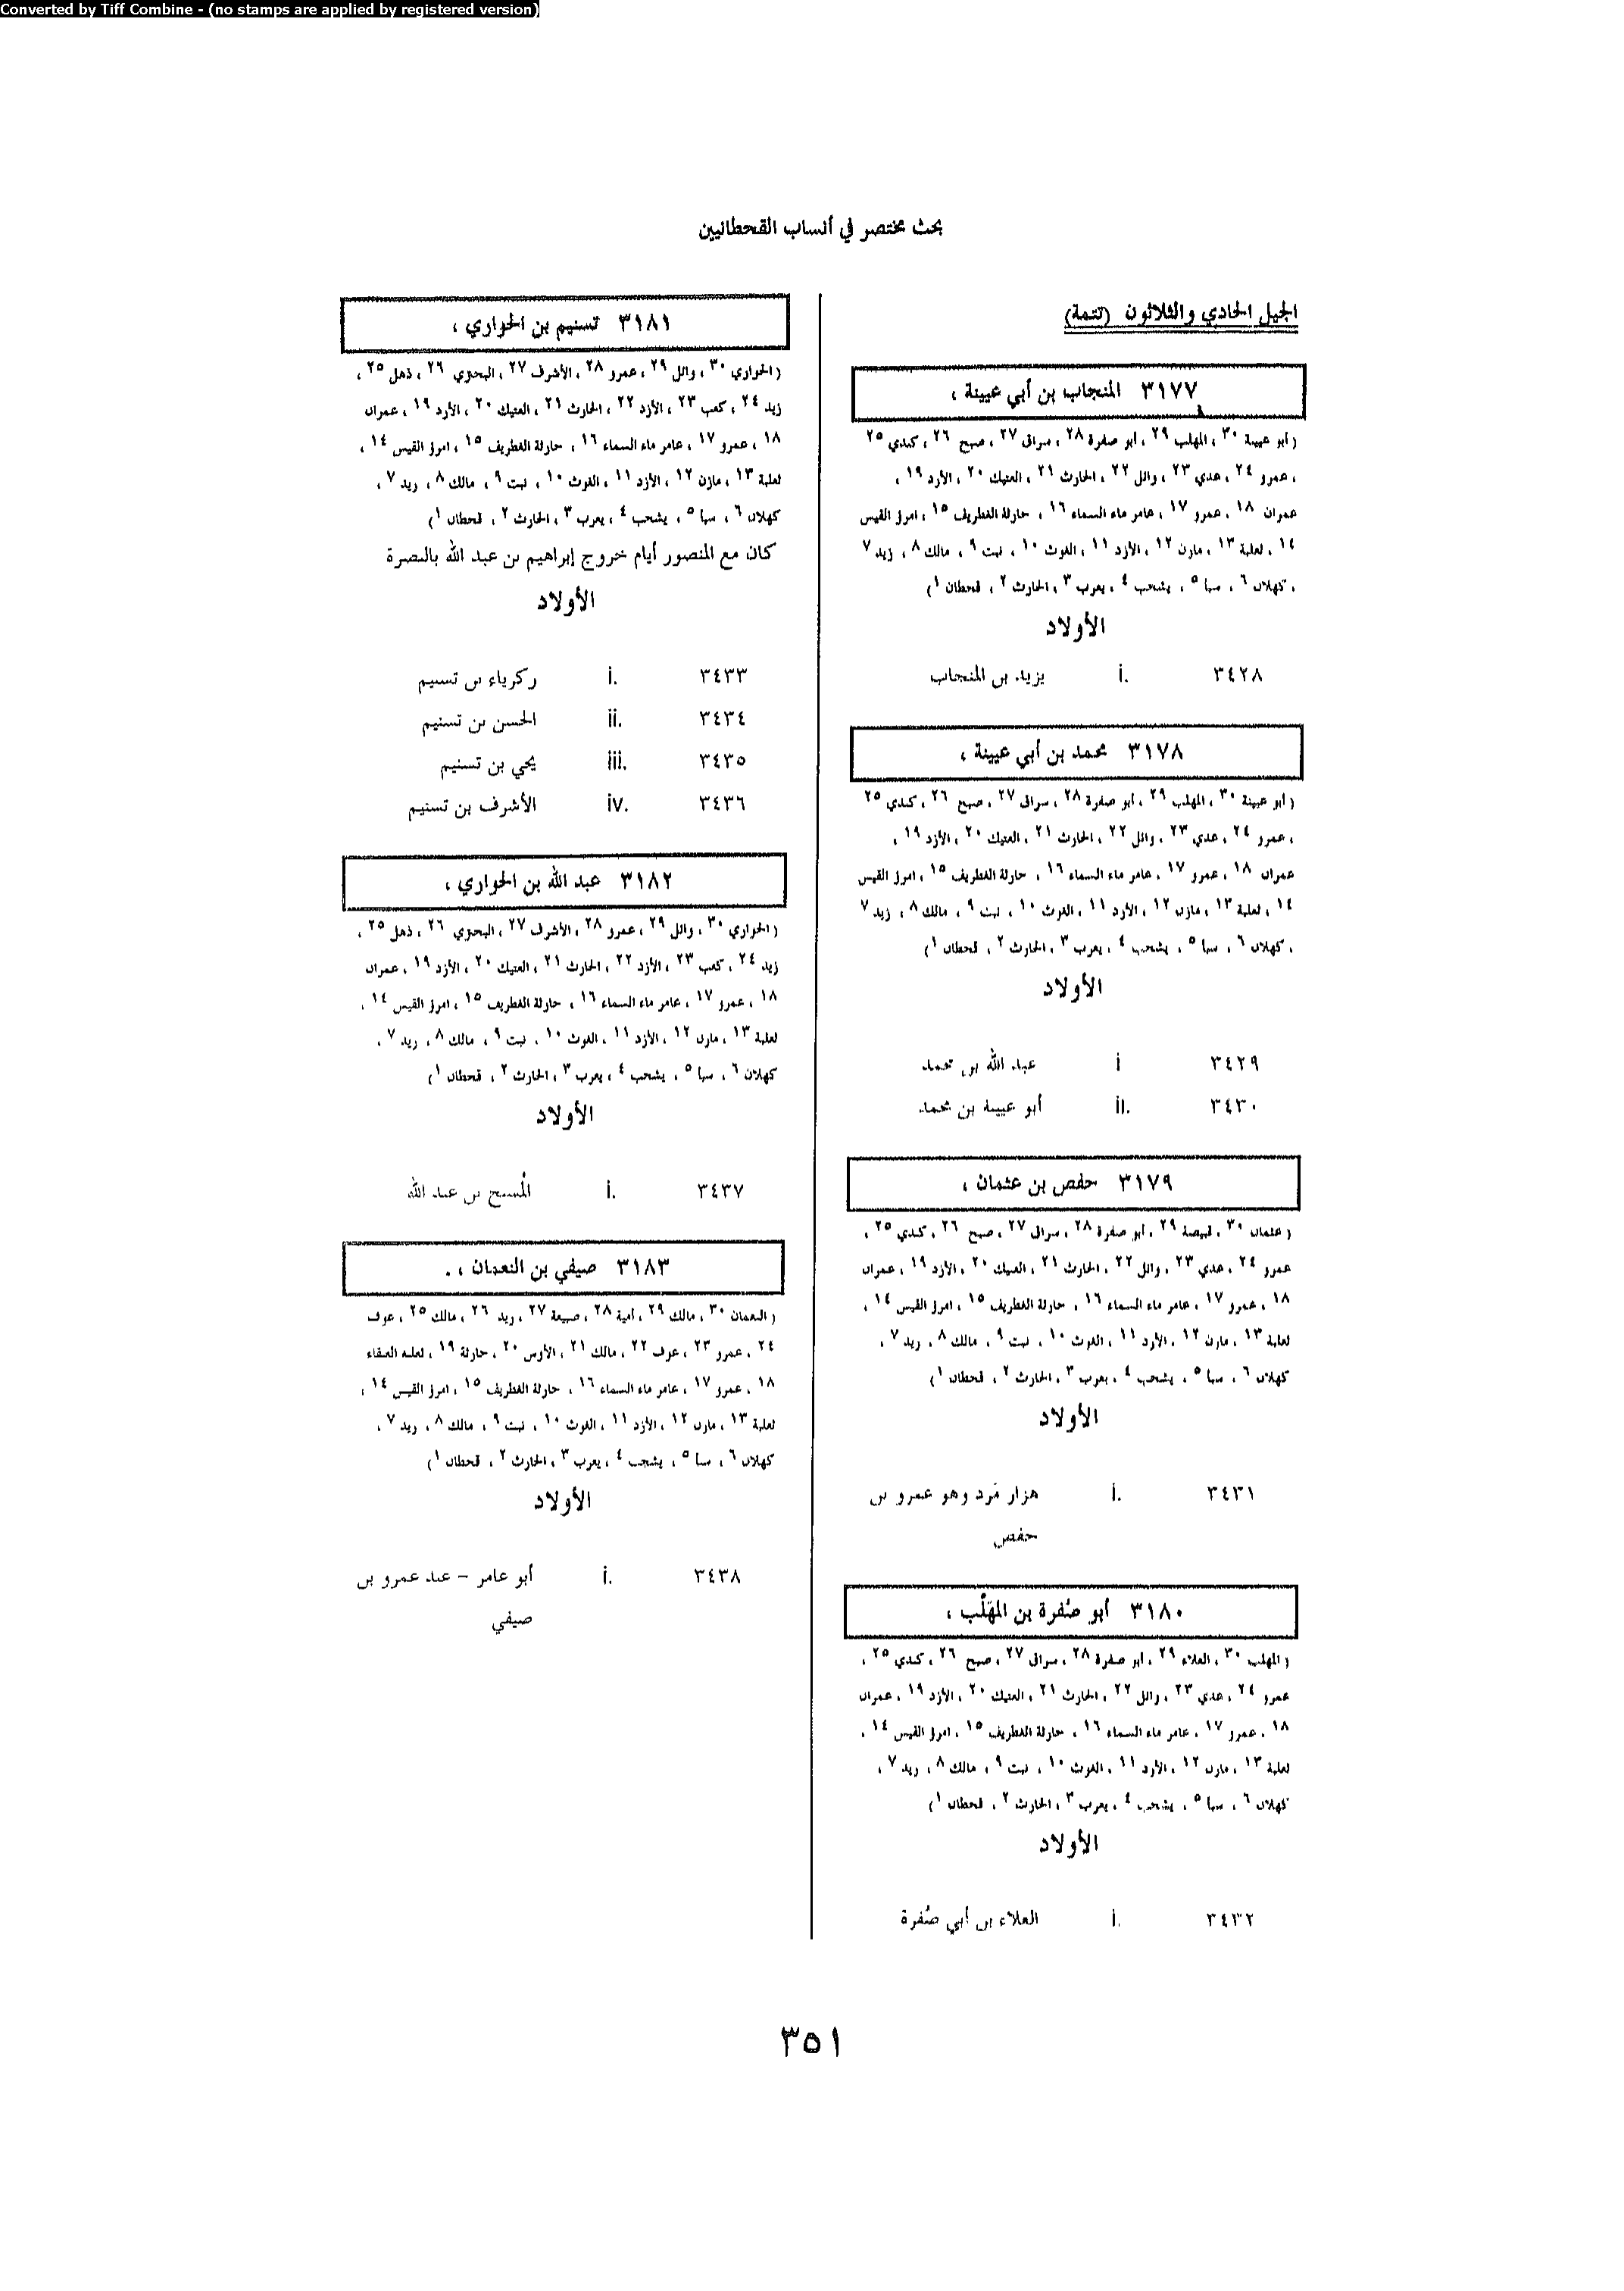 Converted by Tiff Combine - (no stamps are applied by registered version)
بحث مختصر في أنساب القحطانيين
الجيل الحادي والثلاثون (تتمة)
٣١٧٧ المنجاب بن أبي عيينة ،
(أبو عيينة ٣٠ ، المهلب ٢٩ ، أبو صفرة ٢٨ ، سراق ٢٧ ، صبح ٢٦ ، كندي ٢٥
، عمرو ٢٤ ، عدي ٢٣ ، وائل ٢٢ ، الحارث ٢١ ، العتيك ٢٠ ، الأزد ١٩ ،
عمران ١٨ ، عمرو ١٧ ، عامر ماء السماء ١٦ ، حارثة الغطريف ١٥ ، امرؤ القيس
١٤ ، ثعلبة ١٣ ، مازن ١٢ ، الأزد ١١ ، الغوث ١٠ ، نبت ٩ ، مالك ٨ ، زيد ٧
، كهلان ٦ ، سبأ ٥ ، يشجب ٤ ، يعرب ٣ ، الحارث ٢ ، قحطان ١)
الأولاد
٣٤٢٨ i. يزيد بن المنجاب
٣١٧٨ محمد بن أبي عيينة ،
(أبو عيينة ٣٠ ، المهلب ٢٩ ، أبو صفرة ٢٨ ، سراق ٢٧ ، صبح ٢٦ ، كندي ٢٥
، عمرو ٢٤ ، عدي ٢٣ ، وائل ٢٢ ، الحارث ٢١ ، العتيك ٢٠ ، الأزد ١٩ ،
عمران ١٨ ، عمرو ١٧ ، عامر ماء السماء ١٦ ، حارثة الغطريف ١٥ ، امرؤ القيس
١٤ ، ثعلبة ١٣ ، مازن ١٢ ، الأزد ١١ ، الغوث ١٠ ، نبت ٩ ، مالك ٨ ، زيد ٧
، كهلان ٦ ، سبأ ٥ ، يشجب ٤ ، يعرب ٣ ، الحارث ٢ ، قحطان ١)
الأولاد
٣٤٢٩ i عبد الله بن محمد
٣٤٣٠ ii. أبو عيينة بن محمد
٣١٧٩ حفص بن عثمان ،
(عثمان ٣٠ ، قبيصة ٢٩ ، أبو صفرة ٢٨ ، سراق ٢٧ ، صبح ٢٦ ، كندي ٢٥ ،
عمرو ٢٤ ، عدي ٢٣ ، وائل ٢٢ ، الحارث ٢١ ، العتيك ٢٠ ، الأزد ١٩ ، عمران
١٨ ، عمرو ١٧ ، عامر ماء السماء ١٦ ، حارثة الغطريف ١٥ ، امرؤ القيس ١٤ ،
ثعلبة ١٣ ، مازن ١٢ ، الأزد ١١ ، الغوث ١٠ ، نبت ٩ ، مالك ٨ ، زيد ٧ ،
كهلان ٦ ، سبأ ٥ ، يشجب ٤ ، يعرب ٣ ، الحارث ٢ ، قحطان ١)
الأولاد
٣٤٣١ i. هزار مَرد وهو عمرو بن
حفص
٣١٨٠ أبو صُفرة بن المهَلّب ،
(المهلب ٣٠ ، العلاء ٢٩ ، أبو صفرة ٢٨ ، سراق ٢٧ ، صبح ٢٦ ، كندي ٢٥ ،
عمرو ٢٤ ، عدي ٢٣ ، وائل ٢٢ ، الحارث ٢١ ، العتيك ٢٠ ، الأزد ١٩ ، عمران
١٨ ، عمرو ١٧ ، عامر ماء السماء ١٦ ، حارثة الغطريف ١٥ ، امرؤ القيس ١٤ ،
ثعلبة ١٣ ، مازن ١٢ ، الأزد ١١ ، الغوث ١٠ ، نبت ٩ ، مالك ٨ ، زيد ٧ ،
كهلان ٦ ، سبأ ٥ ، يشجب ٤ ، يعرب ٣ ، الحارث ٢ ، قحطان ١)
الأولاد
٣٤٣٢ i. العلاء بن أبي صُفرة
٣١٨١ تسنيم بن الحواري ،
(الحواري ٣٠ ، وائل ٢٩ ، عمرو ٢٨ ، الأشرف ٢٧ ، البختري ٢٦ ، ذهل ٢٥ ،
زيد ٢٤ ، كعب ٢٣ ، الأزد ٢٢ ، الحارث ٢١ ، العتيك ٢٠ ، الأزد ١٩ ، عمران
١٨ ، عمرو ١٧ ، عامر ماء السماء ١٦ ، حارثة الغطريف ١٥ ، امرؤ القيس ١٤ ،
ثعلبة ١٣ ، مازن ١٢ ، الأزد ١١ ، الغوث ١٠ ، نبت ٩ ، مالك ٨ ، زيد ٧ ،
كهلان ٦ ، سبأ ٥ ، يشجب ٤ ، يعرب ٣ ، الحارث ٢ ، قحطان ١)
كان مع المنصور أيام خروج إبراهيم بن عبد الله بالبصرة
الأولاد
٣٤٣٣ i. زكرياء بن تسنيم
٣٤٣٤ ii. الحسن بن تسنيم
٣٤٣٥ iii. يحي بن تسنيم
٣٤٣٦ iv. الأشرف بن تسنيم
٣١٨٢ عبد الله بن الحواري ،
(الحواري ٣٠ ، وائل ٢٩ ، عمرو ٢٨ ، الأشرف ٢٧ ، البختري ٢٦ ، ذهل ٢٥ ،
زيد ٢٤ ، كعب ٢٣ ، الأزد ٢٢ ، الحارث ٢١ ، العتيك ٢٠ ، الأزد ١٩ ، عمران
١٨ ، عمرو ١٧ ، عامر ماء السماء ١٦ ، حارثة الغطريف ١٥ ، امرؤ القيس ١٤ ،
ثعلبة ١٣ ، مازن ١٢ ، الأزد ١١ ، الغوث ١٠ ، نبت ٩ ، مالك ٨ ، زيد ٧ ،
كهلان ٦ ، سبأ ٥ ، يشجب ٤ ، يعرب ٣ ، الحارث ٢ ، قحطان ١)
الأولاد
٣٤٣٧ i. المُسبح بن عبد الله
٣١٨٣ صيفي بن النعمان ، .
(النعمان ٣٠ ، مالك ٢٩ ، أمية ٢٨ ، ضبيعة ٢٧ ، زيد ٢٦ ، مالك ٢٥ ، عوف
٢٤ ، عمرو ٢٣ ، عوف ٢٢ ، مالك ٢١ ، الأوس ٢٠ ، حارثة ١٩ ، ثعلبة العنقاء
١٨ ، عمرو ١٧ ، عامر ماء السماء ١٦ ، حارثة الغطريف ١٥ ، امرؤ القيس ١٤ ،
ثعلبة ١٣ ، مازن ١٢ ، الأزد ١١ ، الغوث ١٠ ، نبت ٩ ، مالك ٨ ، زيد ٧ ،
كهلان ٦ ، سبأ ٥ ، يشجب ٤ ، يعرب ٣ ، الحارث ٢ ، قحطان ١)
الأولاد
٣٤٣٨ i. أبو عامر – عبد عمرو بن
صيفي
٣٥١